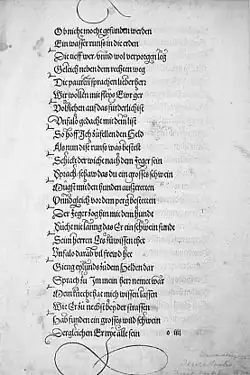 Ob nicht mocht gefunden werden
Ein wasser runss in die erden
Die tieff wer/ vnnd wol verporgen leg
Geleich neben dem rechten weg
Die paurn sprachen lieber herr
Wir wollen mit fleys Ewr ger
Volziehen auf das fürderlichist
Vnfalo gedacht mit dem list
So hoff Ich zu fellen den Held
Als nun dise runss was bestelt
Schickt der wicht nach dem Jeger sein
Sprach schaw das du ein grosses schwein
Mugst mit den hunden
Vnnd gleich vor dem perg bestetten
Der Jeger zog hin mit dem hundt
Nicht lanng das Er ein schwein fundt
Sein herren Les zuwissen
Vnfalo darab vil frewd het
Gieng eylends zu dem Helden dar
Sprach zu Im mein herr nemet war
Mein knecht hat mich wissen lassen
Wie Er zu nechst bey der strassen
Hab funden ein grosses wild schwein
Dergleichen Er nye all sein o iiii